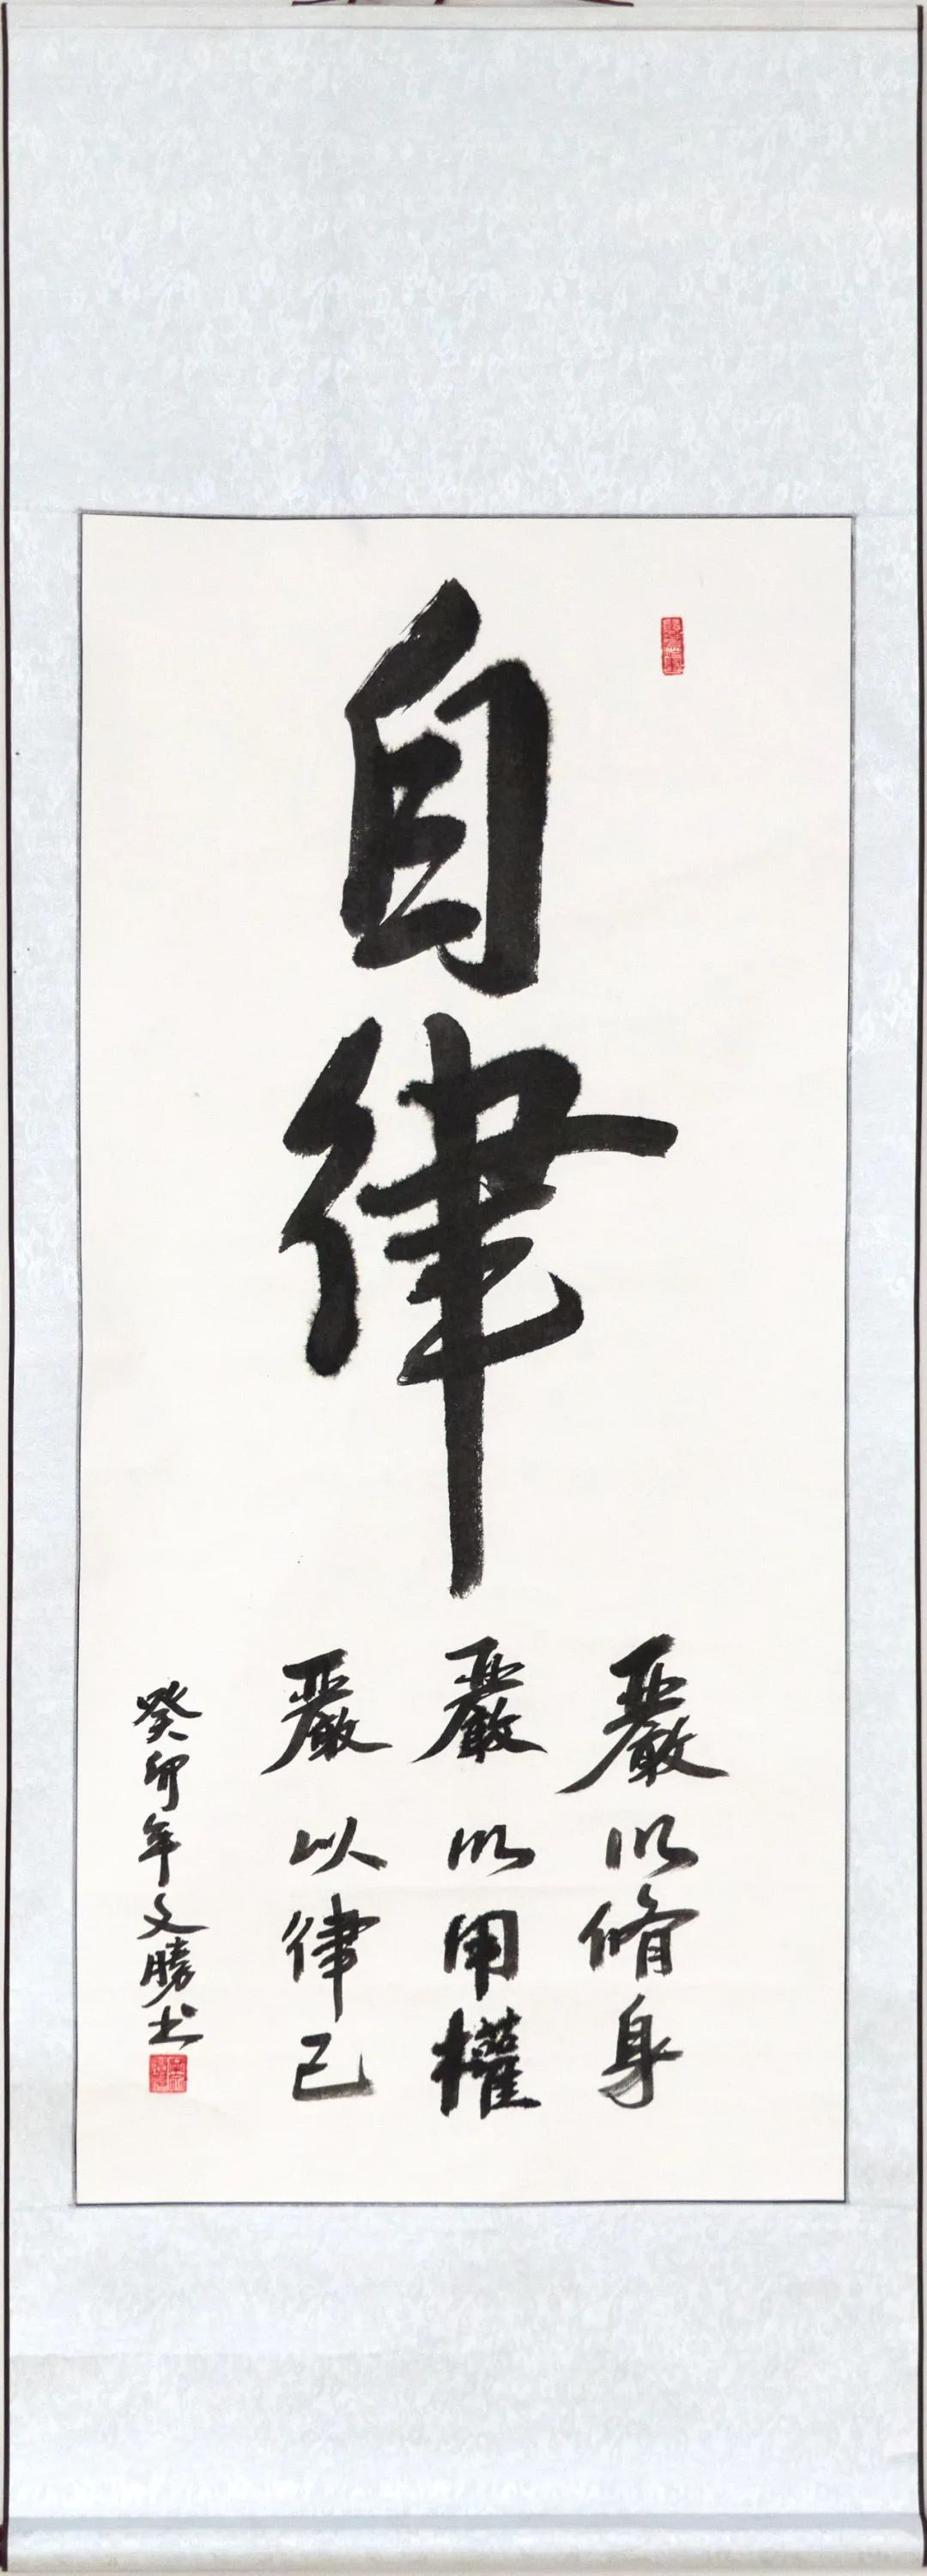 自律
嚴以脩身
嚴以用權
嚴以律己
癸卯年文勝书